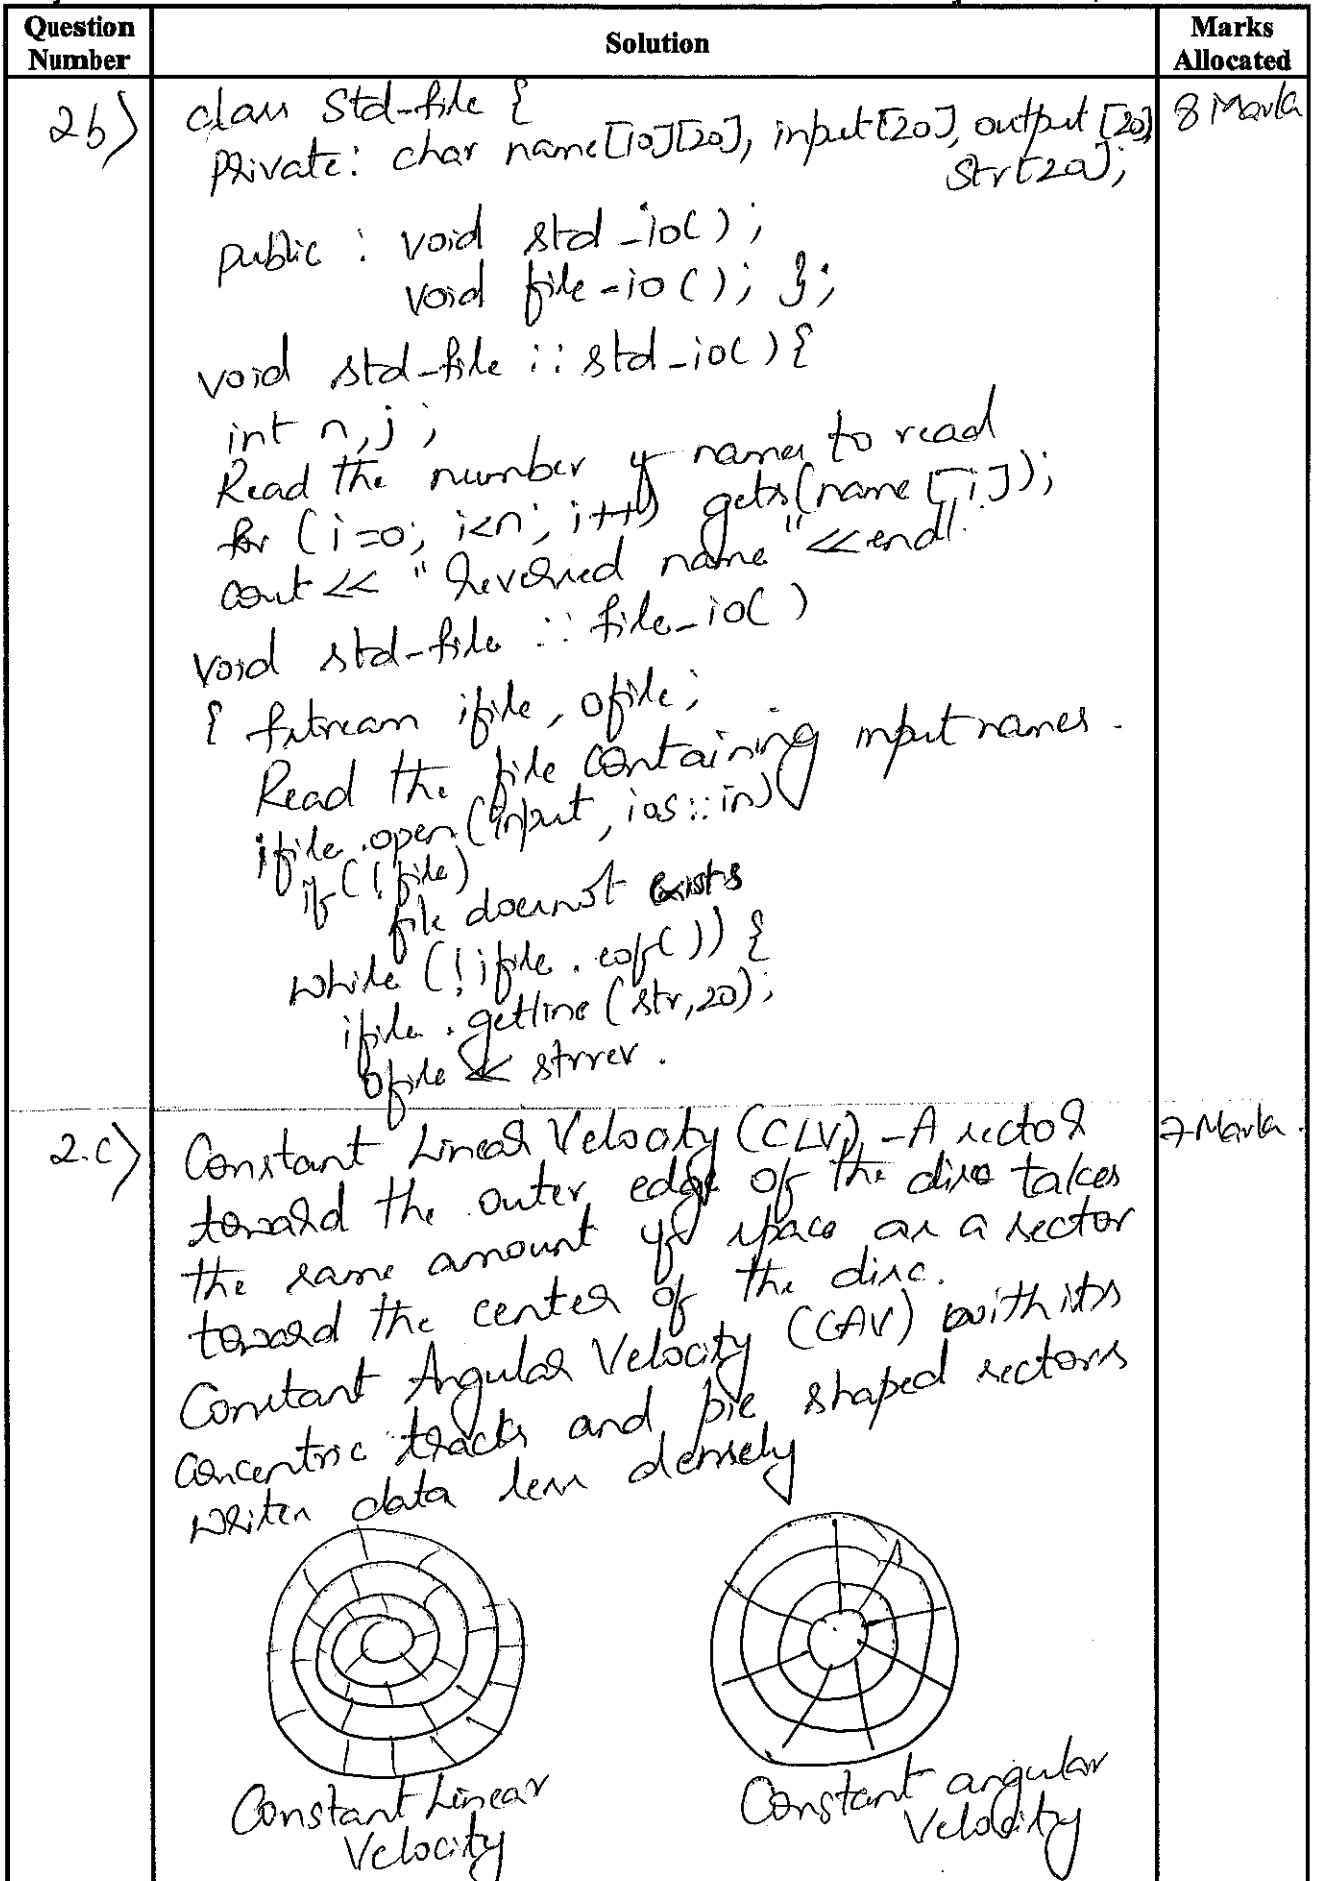 Question Number
Solution
Marks Allocated
2b)
8 Marks
class std-file {
private: char name[10][20], input[20], output[20]
str[20];
public : void std_io();
void file-io(); };
void std-file :: std_io() {
int n, j ;
Read the number of names to read
for (i=0; i<n; i++) gets(name[i]);
cout << "Reversed name" <<endl.
void std-file :: file_io()
{ fstream ifile, ofile;
Read the file containing input names.
ifile.open(input, ios::in)
if (!file)
file doesnot exists
while (!ifile.eof()) {
ifile.getline(str,20);
ofile << strrev.
2.c)
7 Marks.
Constant Linear Velocity (CLV) - A sector
toward the outer edge of the disc takes
the same amount of space as a sector
toward the center of the disc.
Constant Angular Velocity (CAV) with its
concentric tracks and pie shaped sectors
writes data less densely
Constant Linear
Velocity
Constant angular
Velocity